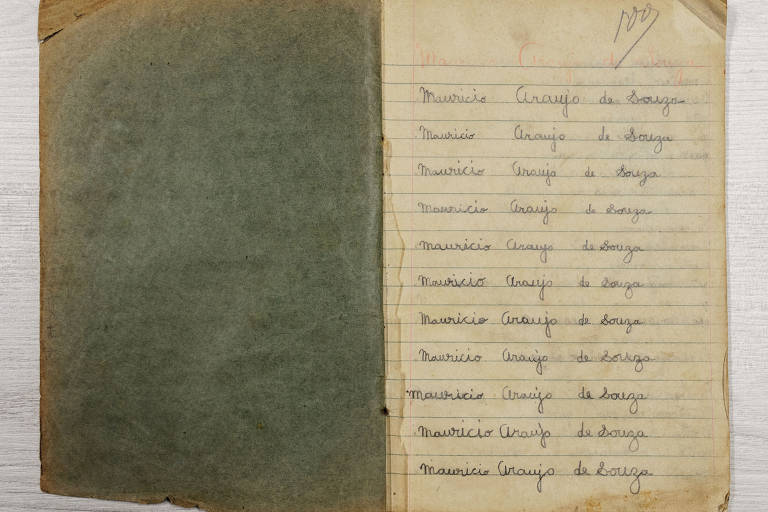 100
Mauricio Araujo de Souza
Mauricio Araujo de Souza
Mauricio Araujo de Souza
Mauricio Araujo de Souza
Mauricio Araujo de Souza
Mauricio Araujo de Souza
Mauricio Araujo de Souza
Mauricio Araujo de Souza
Mauricio Araujo de Souza
Mauricio Araujo de Souza
Mauricio Araujo de Souza